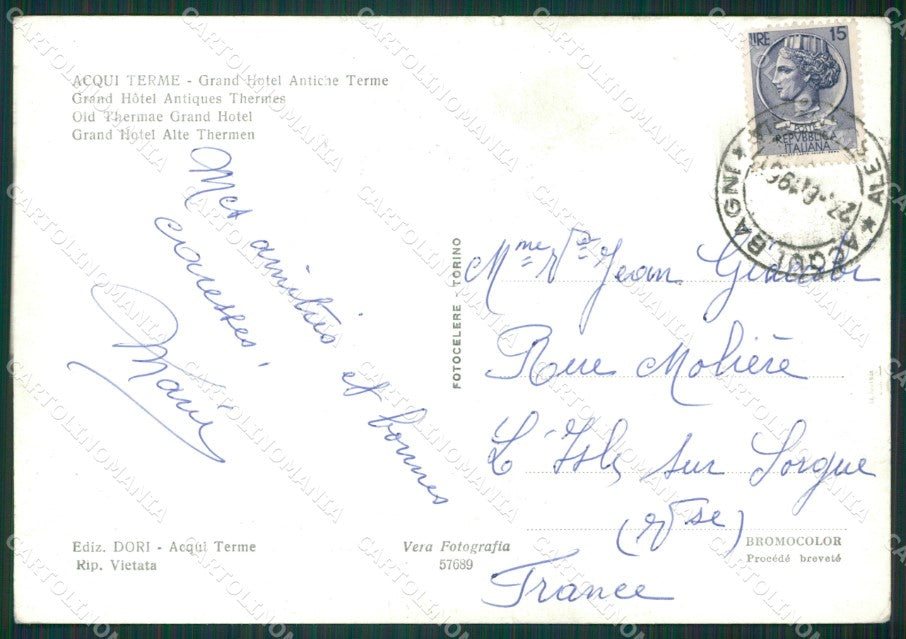 ACQUI TERME - Grand Hotel Antiche Terme
Grand Hôtel Antiques Thermes
Old Thermae Grand Hotel
Grand Hotel Alte Thermen
Mes amitiés et bonnes
caresses,
Marie
Ediz. DORI - Acqui Terme
Rip. Vietata
Vera Fotografia
57689
FOTOCELERE - TORINO
LIRE 15
POSTE
REPVBBLICA
ITALIANA
ACQUI BAGNI
ALE
Mme Vve Jean
Rue Molière
L'Isle sur Sorgue
(Vse)
France
BROMOCOLOR
Procédé breveté
CARTOLINOMANIA